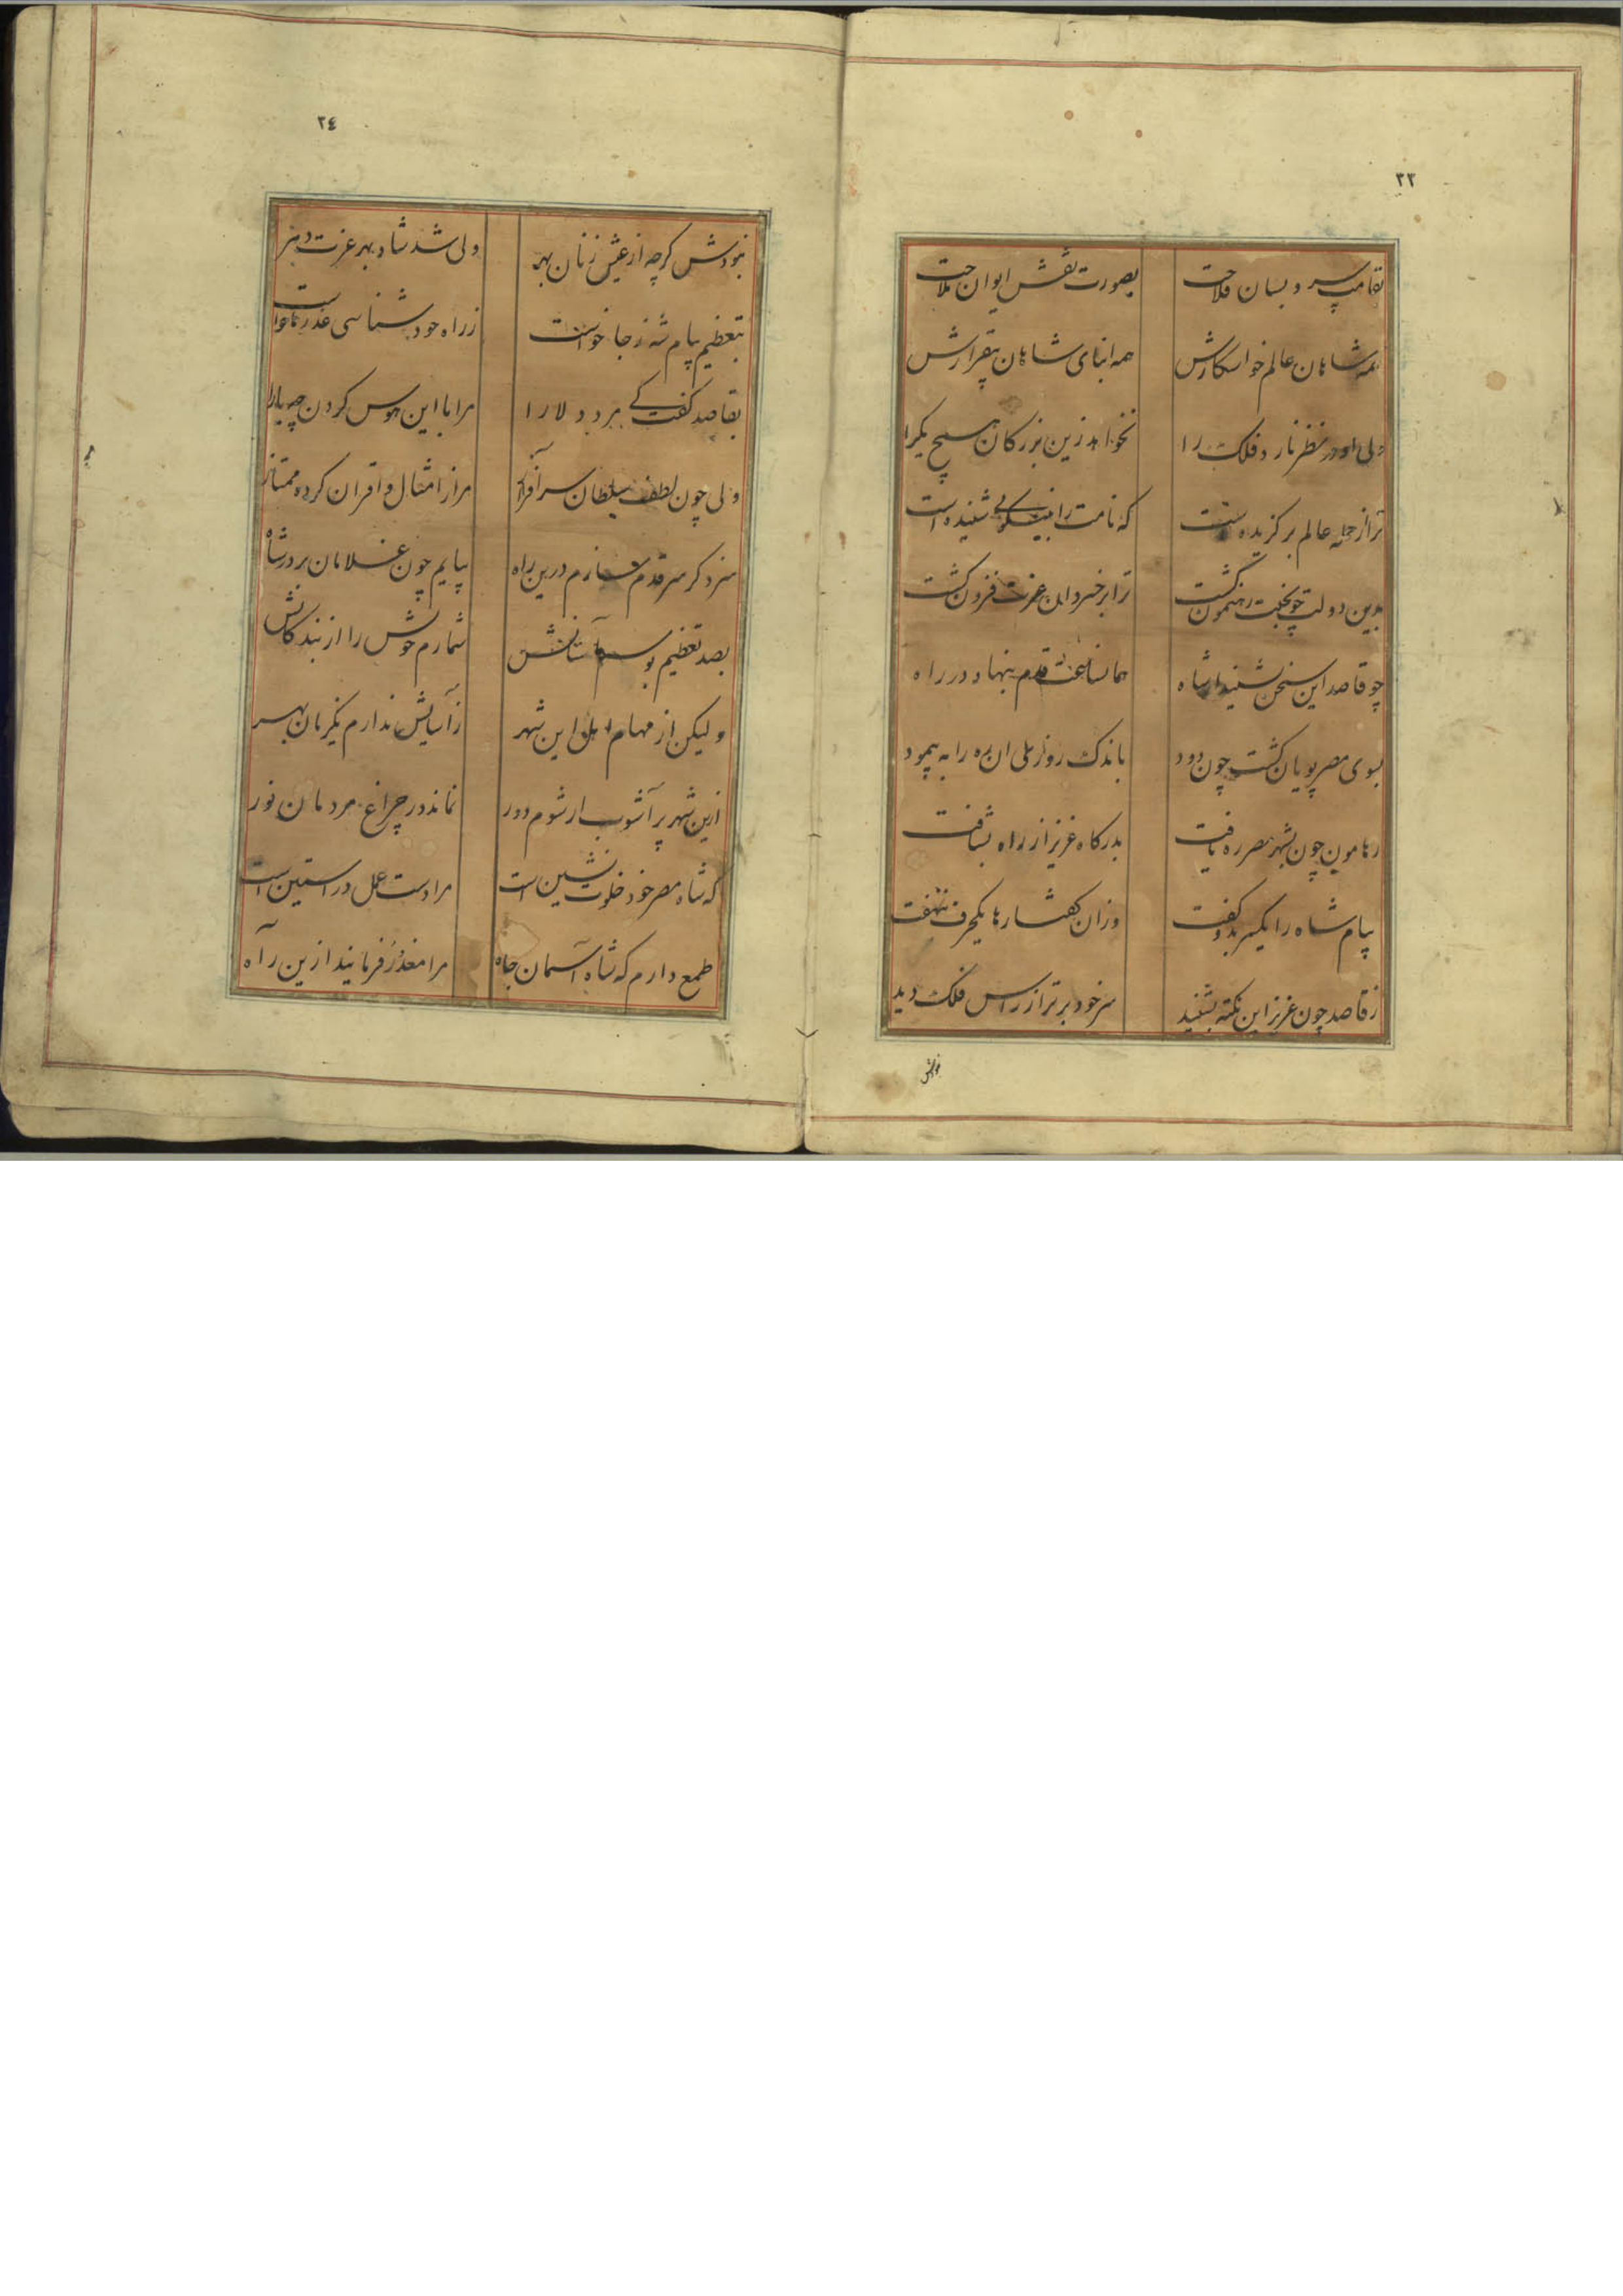 ٢٣
بقامت سرو بستان فلاحت
بصورت نقش ایوان ملاحت
همه شاهان عالم خواستکارش
همه ابنای شاهان بیقرارش
ولی او در نظر نارد فلک را
نخواهد زین بزرکان هیچ یکرا
ترا از جمله عالم برکزیده است
که نامت را به نیکویی شنیده است
بدین دولت چو بختت رهنمون کشت
ترا بر خسروان عزت فزون کشت
چو قاصد این سخن بشنید از شاه
همانساعت قدم بنهاد در راه
بسوی مصر پویان کشت چون دود
باندک روز ملی ان ره را به پیمود
ز هامون چون بشهر مصر ره یافت
بدرکاه عزیز از راه بشتافت
پیام شاه را یکسر بدو کفت
وزان کفتارها یکحرف ننهفت
ز قاصد چون عزیز این نکته بشنید
سر خود برتر از راس فلک دید
نبودش
٢٤
نبودش کرچه از عیش زنان بهر
ولی شد شاد بهر عزت دهر
بتعظیم پیام شه ز جا خواست
ز راه خود شناسی عذرها خواست
بقاصد کفت کے برد دلارا
مرا با این هوس کردن چه یارا
ولی چون لطف سلطان سرافراز
مرا ز امثال و اقران کرده ممتاز
سزد کر سر قدم سازم درین راه
بیایم چون غلامان بر در شاه
بصد تعظیم بوسم آستانش
شمارم خویش را از بندکانش
ولیکن از مهام اهل این شهر
ز آسایش ندارم یکزمان بهر
ازین شهر پر آشوب ار شوم دور
نماند در چراغ مردمان نور
که شاه مصر خود خلوت نشین است
مرا دست عمل در استین است
طمع دارم که شاه آسمان جاه
مرا معذور فرمایند ازین راه